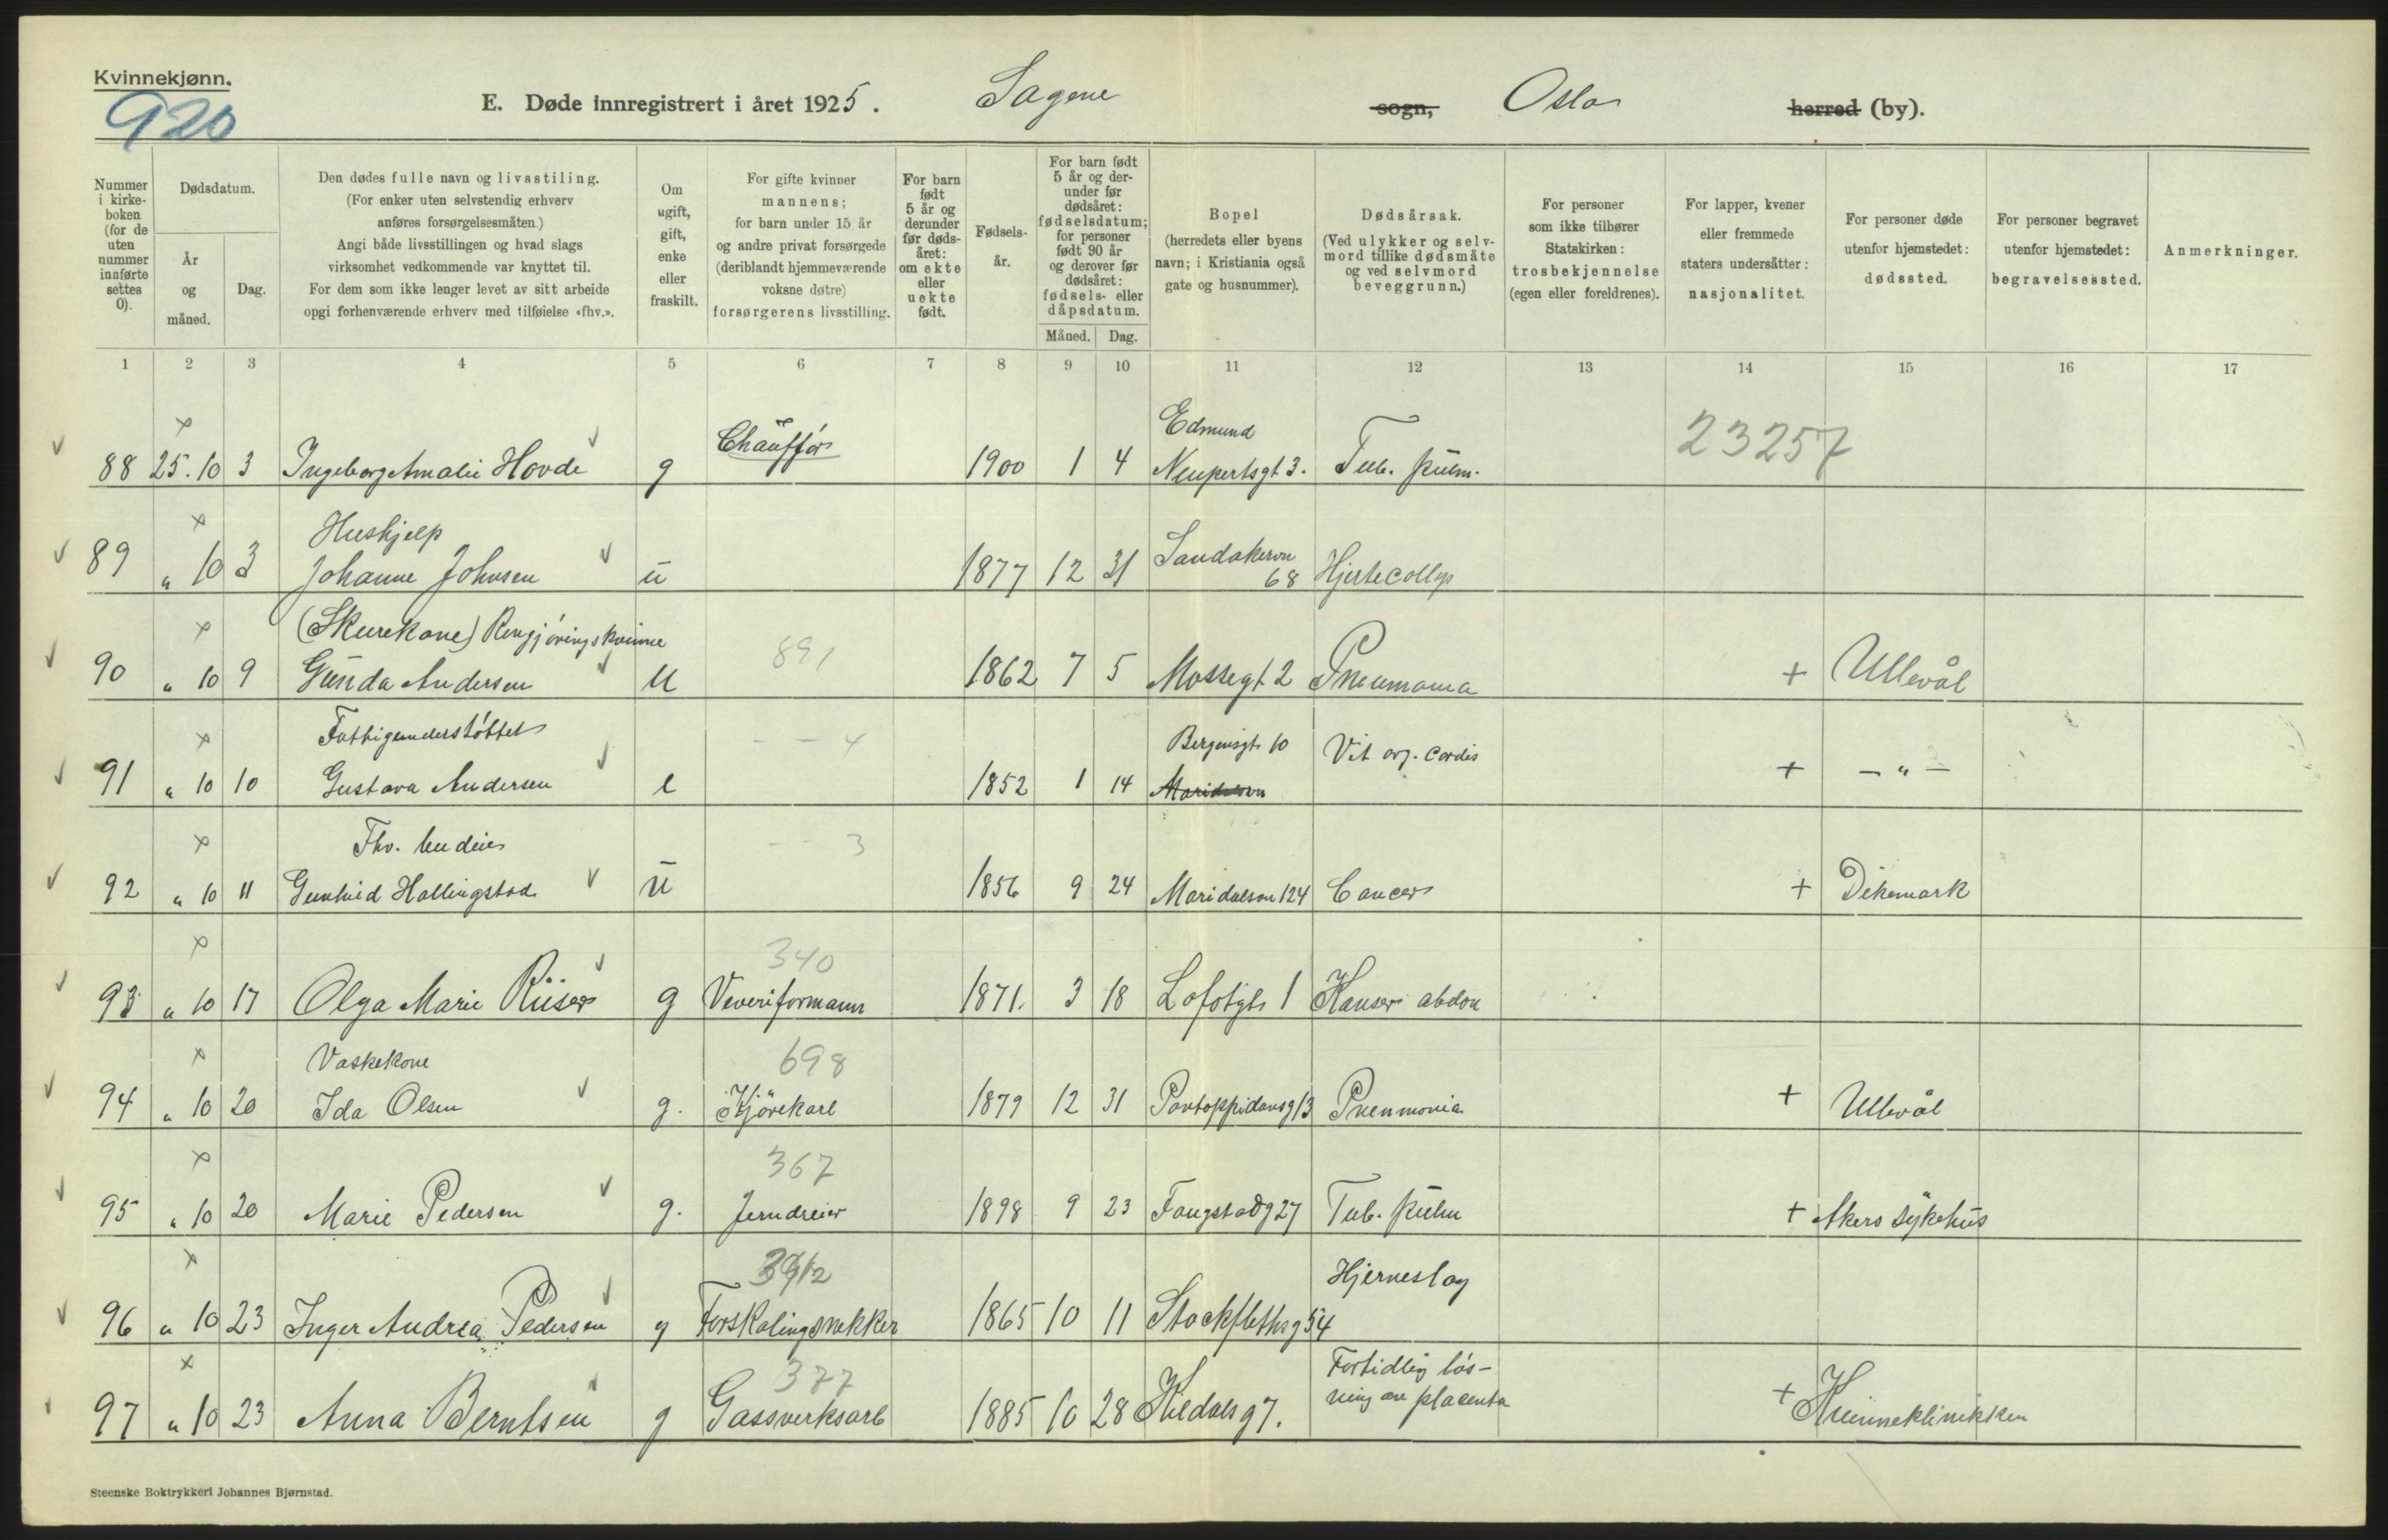 Kvinnekjønn.
920
E. Døde innregistrert i året 1925. Sagene sogn, Oslo herred (by).
Nummer i kirkeboken (for de uten nummer innførte settes 0).
Dødsdatum.
År og måned.
Dag.
Den dødes fulle navn og livsstiling.
(For enker uten selvstendig erhverv
anføres forsørgelsesmåten.)
Angi både livsstillingen og hvad slags
virksomhet vedkommende var knyttet til.
For dem som ikke lenger levet av sitt arbeide
opgi forhenværende erhverv med tilføielse «fhv.».
Om ugift, gift, enke eller fraskilt.
For gifte kvinner
mannens;
for barn under 15 år
og andre privat forsørgede
(deriblandt hjemmeværende
voksne døtre)
forsørgerens livsstilling.
For barn født 5 år og derunder før dødsåret: om ekte eller uekte født.
Fødselsår.
For barn født 5 år og derunder før dødsåret: fødselsdatum; for personer født 90 år og derover før dødsåret: fødsels- eller dåpsdatum.
Måned. Dag.
Bopel
(herredets eller byens
navn; i Kristiania også
gate og husnummer).
Dødsårsak.
(Ved ulykker og selvmord tillike dødsmåte
og ved selvmord
beveggrunn.)
For personer
som ikke tilhører
Statskirken:
trosbekjennelse
(egen eller foreldrenes).
For lapper, kvener
eller fremmede
staters undersåtter:
nasjonalitet.
For personer døde
utenfor hjemstedet:
dødssted.
For personer begravet
utenfor hjemstedet:
begravelsessted.
Anmerkninger.
1 2 3 4 5 6 7 8 9 10 11 12 13 14 15 16 17
Edmund
88 25.10 3 Ingeborg Amalie Hovde g Chauffør 1900 1 4 Neupertsgt 3. Tub. pulm. 23257
Hushjelp
89 " 10 3 Johanne Johnsen u 1877 12 31 Sandakervn 68 Hjertecollaps
(Skurekone) Rengjøringskvinne
90 " 10 9 Gunda Andersen u 891 1862 7 5 Mossegt 2 Pneumonia + Ullevål
Fattigunderstøttet
91 " 10 10 Gustava Andersen e – – 4 1852 1 14 Bergensgt 10 Vit org. cordis + – " –
Maridalsvn
Fhv. budeie
92 " 10 11 Gunhild Hallingstad u – – 3 1856 9 24 Maridalsvn 124 Cancer + Dikemark
340
93 " 10 17 Olga Marie Riiser g Veveriformann 1871. 3 18 Lofotgt 1 Kanser abdom
Vaskekone 698
94 " 10 20 Ida Olsen g. Kjørekarl 1879 12 31 Pontoppidansg 13 Pneumonia + Ullevål
367
95 " 10 20 Marie Pedersen g. Jerndreier 1898 9 23 Fougstadg 27 Tub. pulm + Akers sykehus
Hjerneslag
96 " 10 23 Inger Andrea Pedersen g Forskalingsnekker 1865 10 11 Stockflethsg 54
377
97 " 10 23 Anna Berntsen g Gassverksarb 1885 10 28 7. Fortidlig løs-
ning av placenta + Kvinneklinikken
Steenske Boktrykkeri Johannes Bjørnstad.